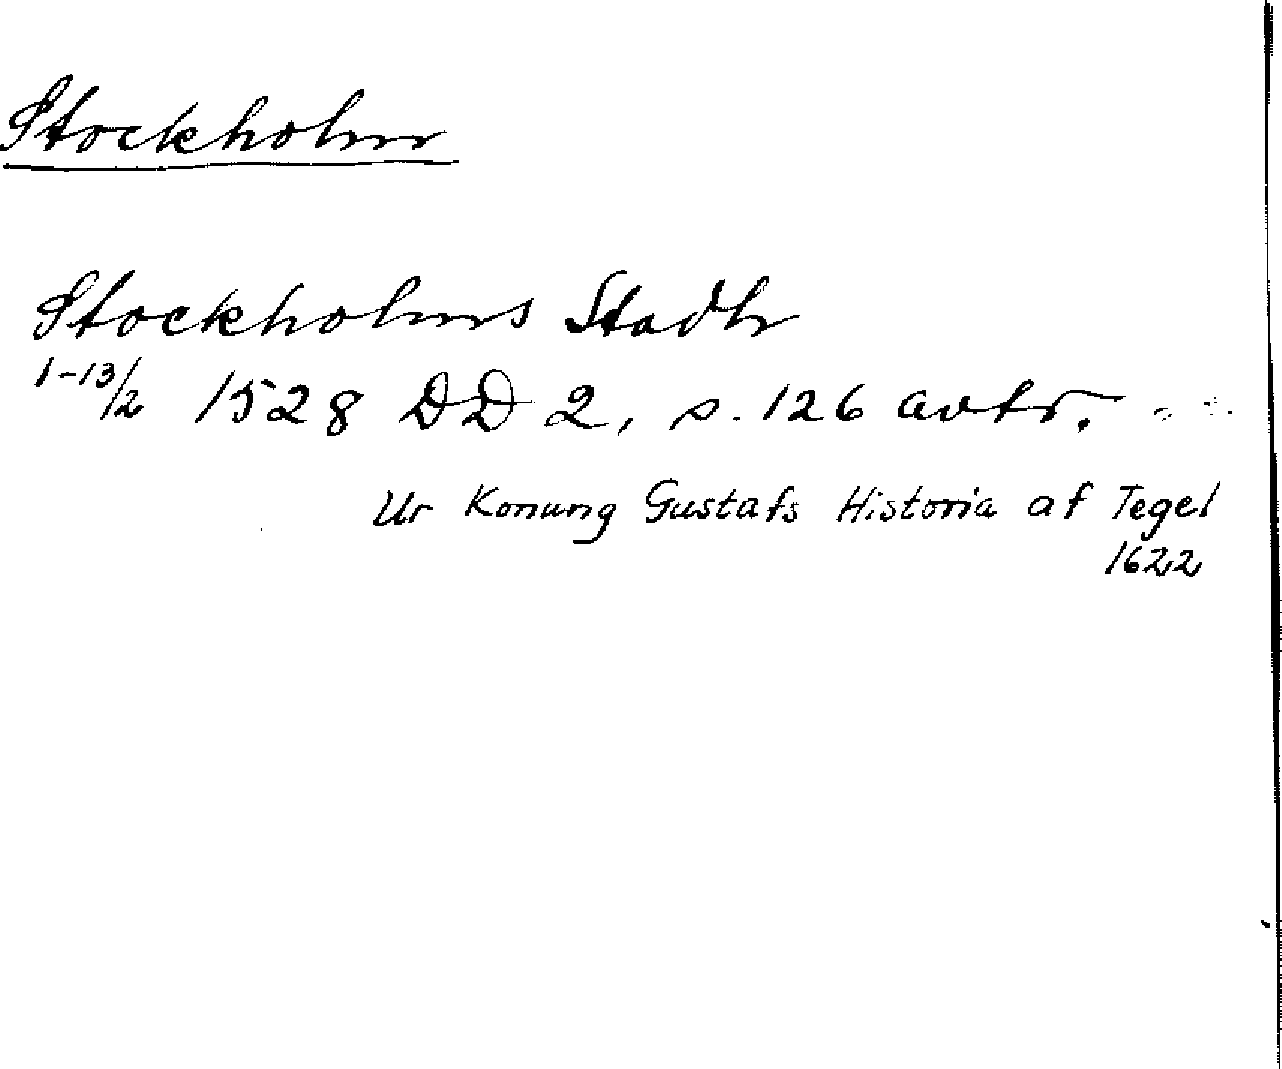 Stockholm
Stockholms Stadh
1-13/2 1528 DD 2, s. 126 avtr.
Ur Konung Gustafs Historia af Tegel
1622